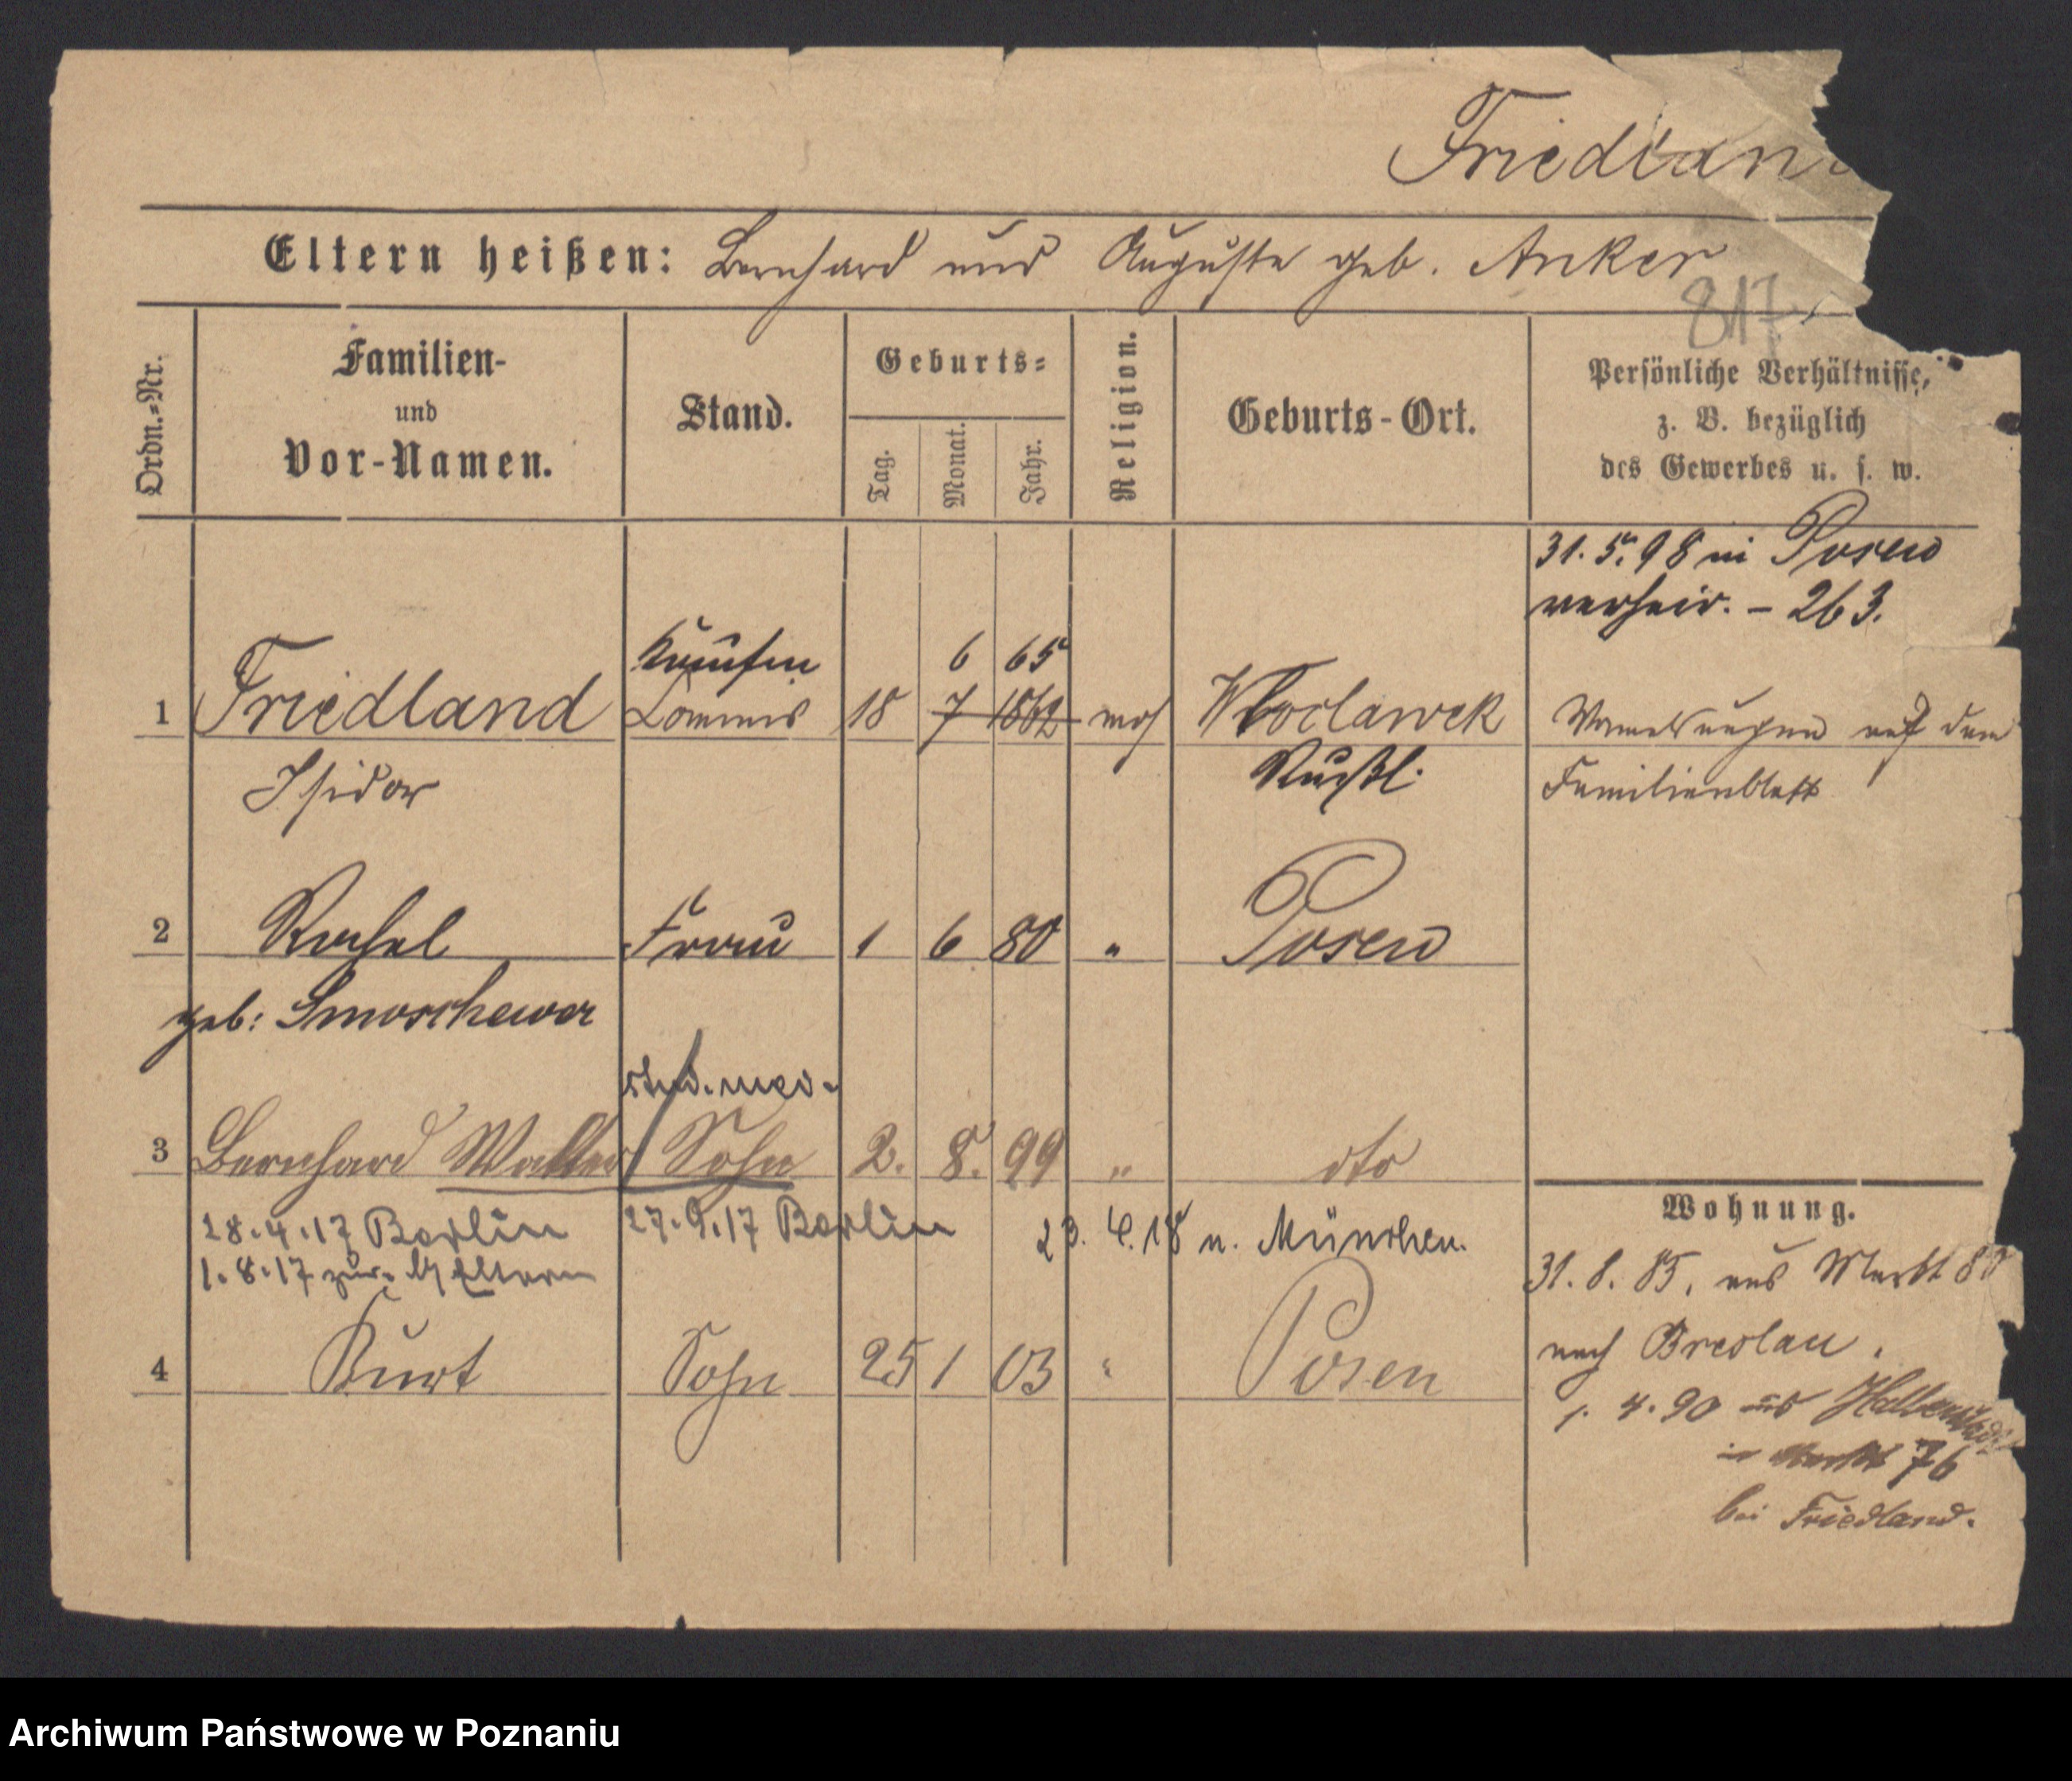 Friedlan
Eltern heißen: Bernhard und Auguste geb. Anker
817
Ordn.=Nr.
Familien-
und
Vor-Namen.
Stand.
Geburts=
Tag.
Monat.
Jahr.
Religion.
Geburts-Ort.
Persönliche Verhältnisse,
z. B. bezüglich
des Gewerbes u. s. w.
31.5.98 in Posen
verheir. – 263.
Kaufm 6 65
1 Friedland Commis 18 7 1862 mos Wloclawek
Isidor Rußl.
auf dem
Familienblatt
2 Rachel Frau 1 6 80 " Posen
geb: Smoschewer
stud. med.
3 Bernhard Walter Sohn 2. 8. 99 " dto
28.4.17 Berlin 27.9.17 Berlin 23.4.18 n. München.
1.8.17 zur. Eltern
4 Kurt Sohn 25 1 03 " Posen
Wohnung.
31.8.85. aus Markt
nach Breslau.
1. 4. 90 aus
in Markt 76
bei Friedland.
Archiwum Państwowe w Poznaniu